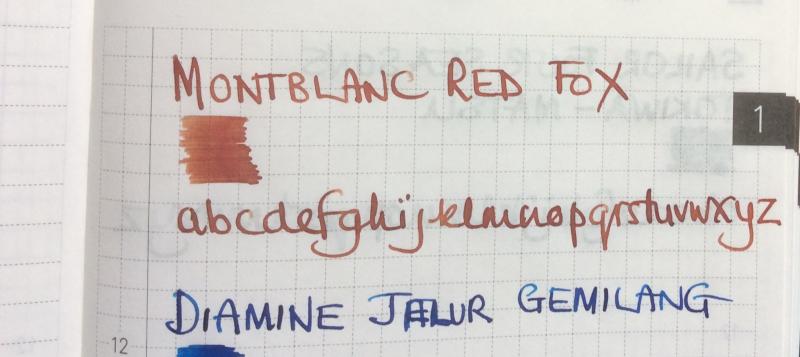 MONTBLANC RED FOX
1
abcdefghijklmnopqrstuvwxyz
DIAMINE JALUR GEMILANG
12